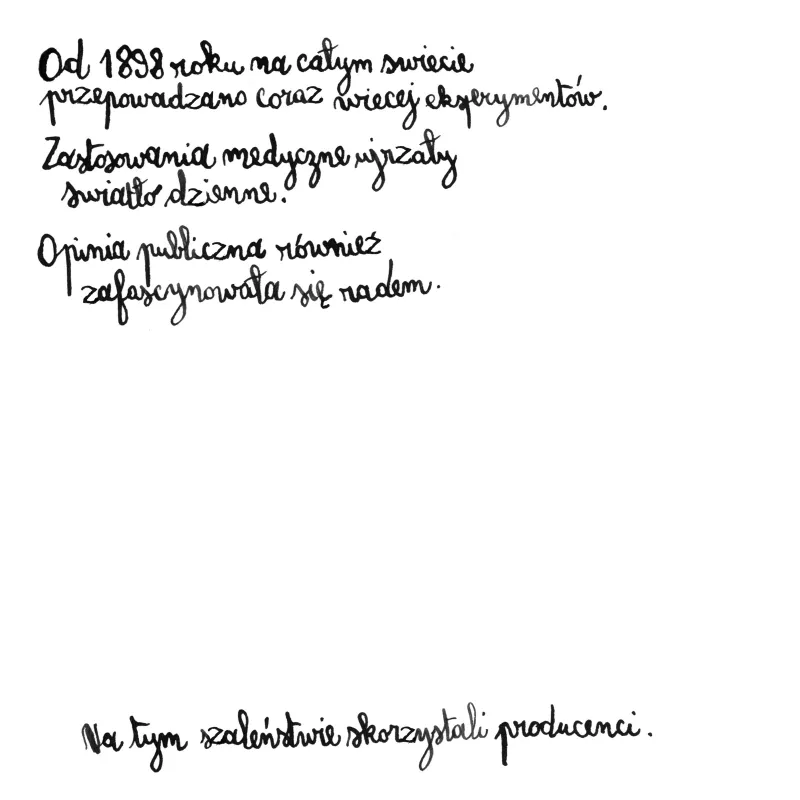 Od 1898 roku na całym swiecie
przepowadzano coraz wiecej eksperymentów.
Zastosowania medyczne ujrzały
swiatło dzienne.
Opinia publiczna również
zafascynowała się radem.
Na tym szaleństwie skorzystali producenci.